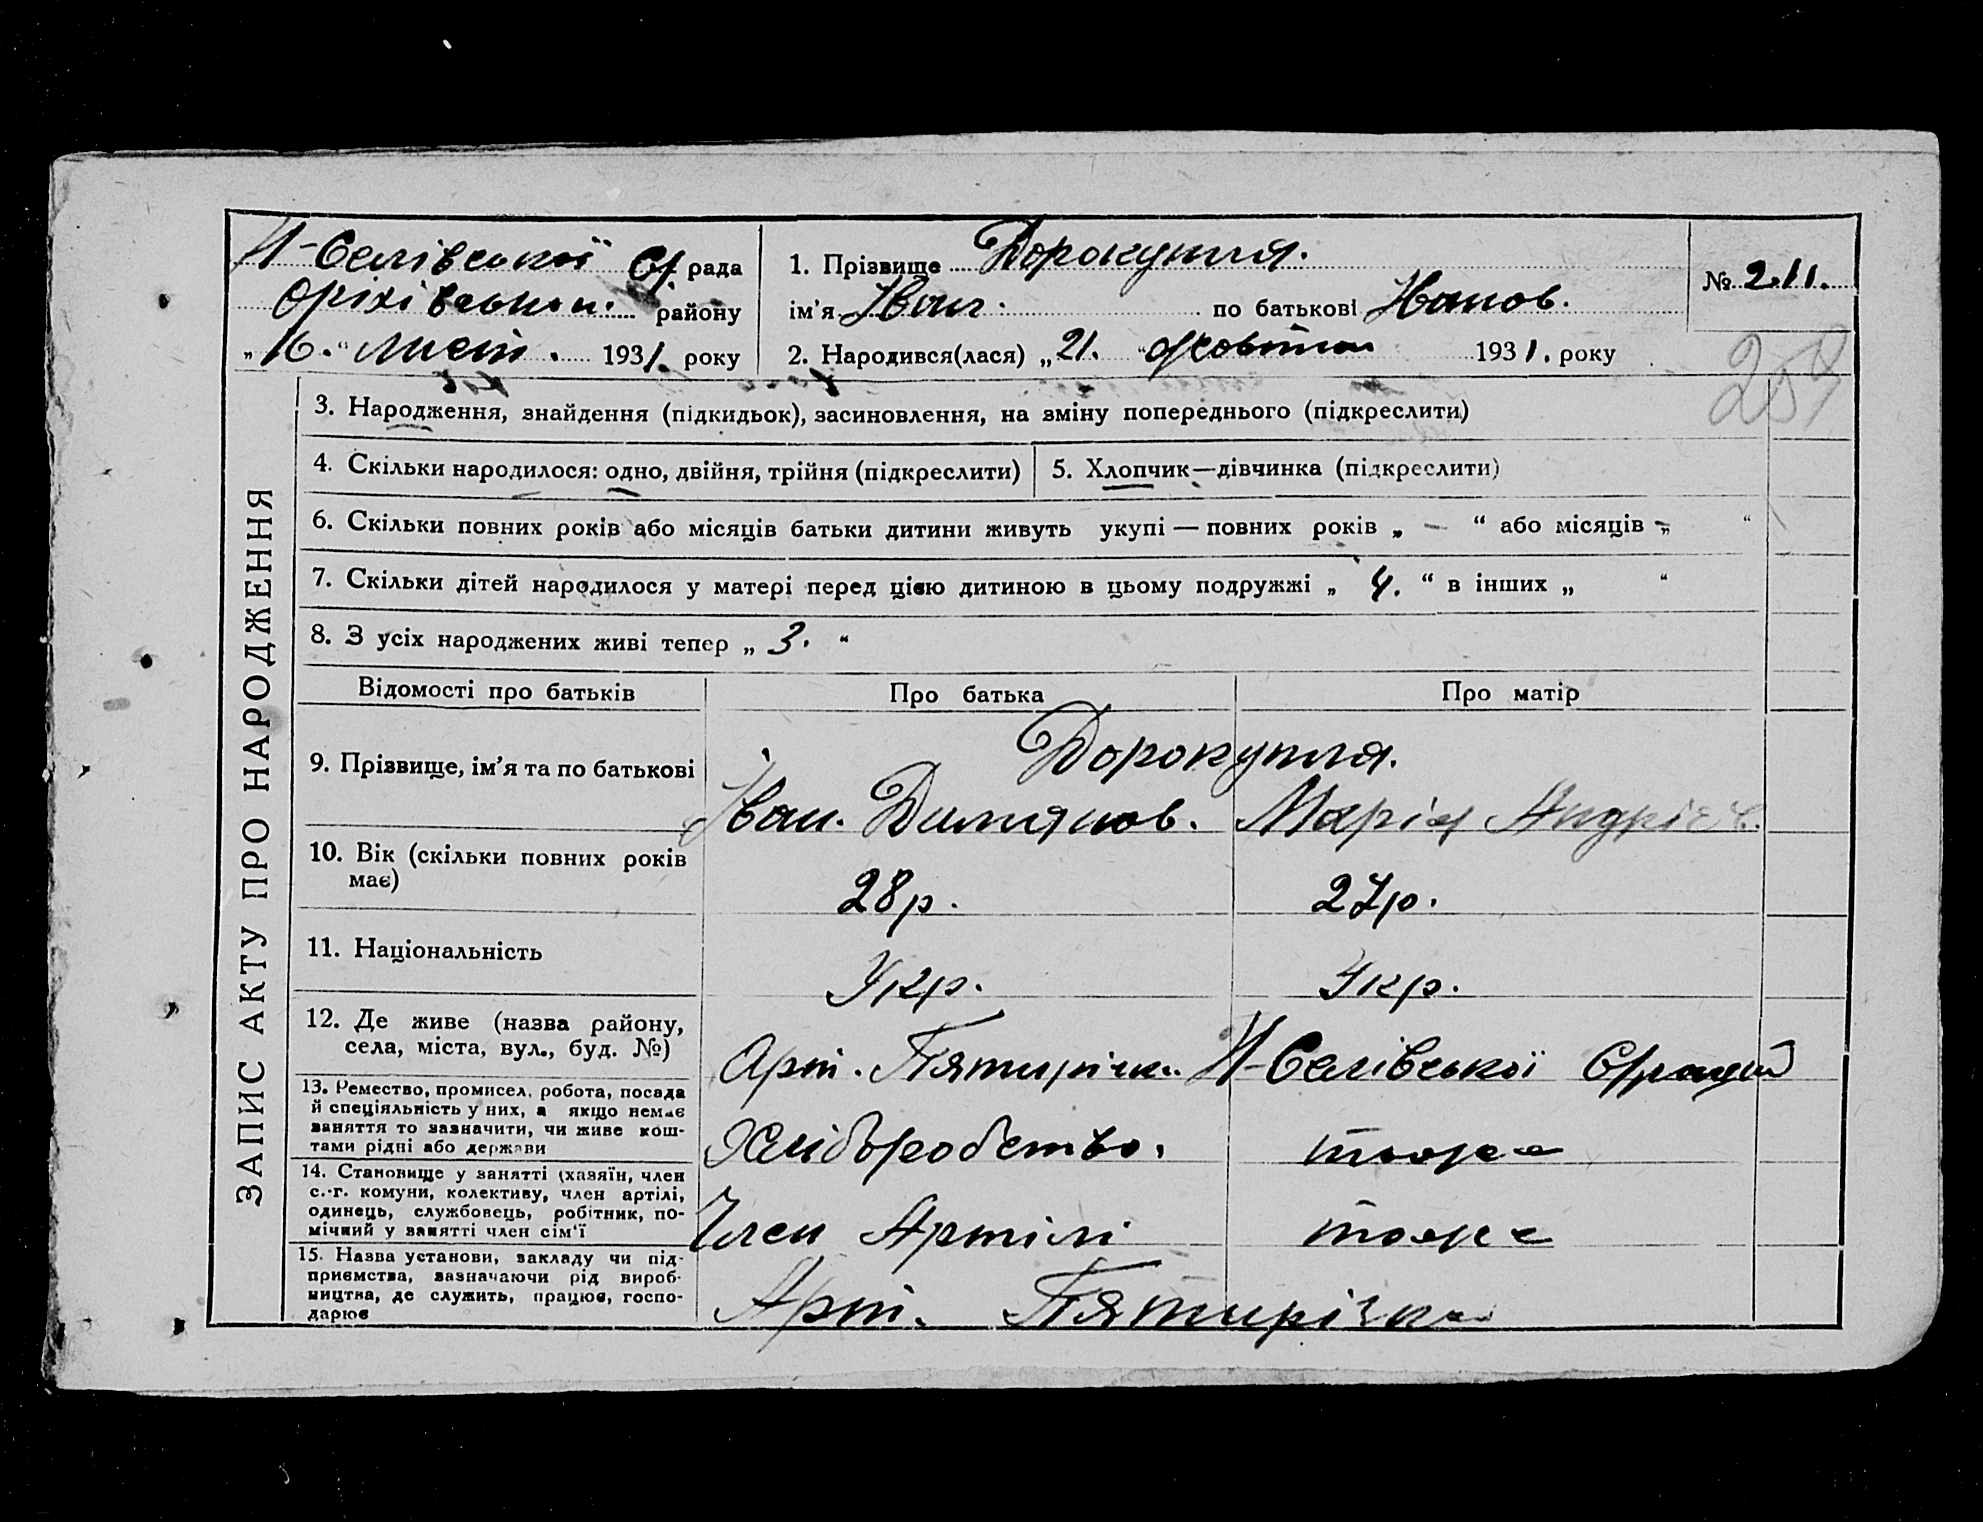 Н-Селівської С/ рада
Оріхівськои. району
„16.“ Лист. 1931. року
1. Прізвище Дорокупля.
ім’я Іван. по батькові Иванов.
2. Народився(лася) „21.“ Жовтня 1931. року
№ 211.
3. Народження, знайдення (підкидьок), засиновлення, на зміну попереднього (підкреслити)
4. Скільки народилося: одно, двійня, трійня (підкреслити)
5. Хлопчик—дівчинка (підкреслити)
6. Скільки повних років або місяців батьки дитини живуть укупі — повних років „ – “ або місяців „ – “
7. Скільки дітей народилося у матері перед цією дитиною в цьому подружжі „ 4. “ в інших „ “
8. З усіх народжених живі тепер „ 3. “
ЗАПИС АКТУ ПРО НАРОДЖЕННЯ
Відомості про батьків Про батька Про матір
9. Прізвище, ім’я та по батькові
Дорокупля.
Іван. Димянов. Марія Андрієв.
10. Вік (скільки повних років
має)
28р. 27р.
11. Національність
Укр. Укр.
12. Де живе (назва району,
села, міста, вул., буд. №)
Арт. Пятирічк. Н-Селівської С/ради
13. Ремество, промисел, робота, посада
й спеціяльність у них, а якщо немає
заняття то зазначити, чи живе кош-
тами рідні або держави
Хліборобство. тоже
14. Становище у занятті (хазяїн, член
с.-г. комуни, колективу, член артілі,
одинець, службовець, робітник, по-
мічний у занятті член сім’ї
Член Артілі тоже
15. Назва установи, закладу чи під-
приємства, зазначаючи рід вироб-
ництва, де служить, працює, госпо-
дарює
Арт. Пятирічка